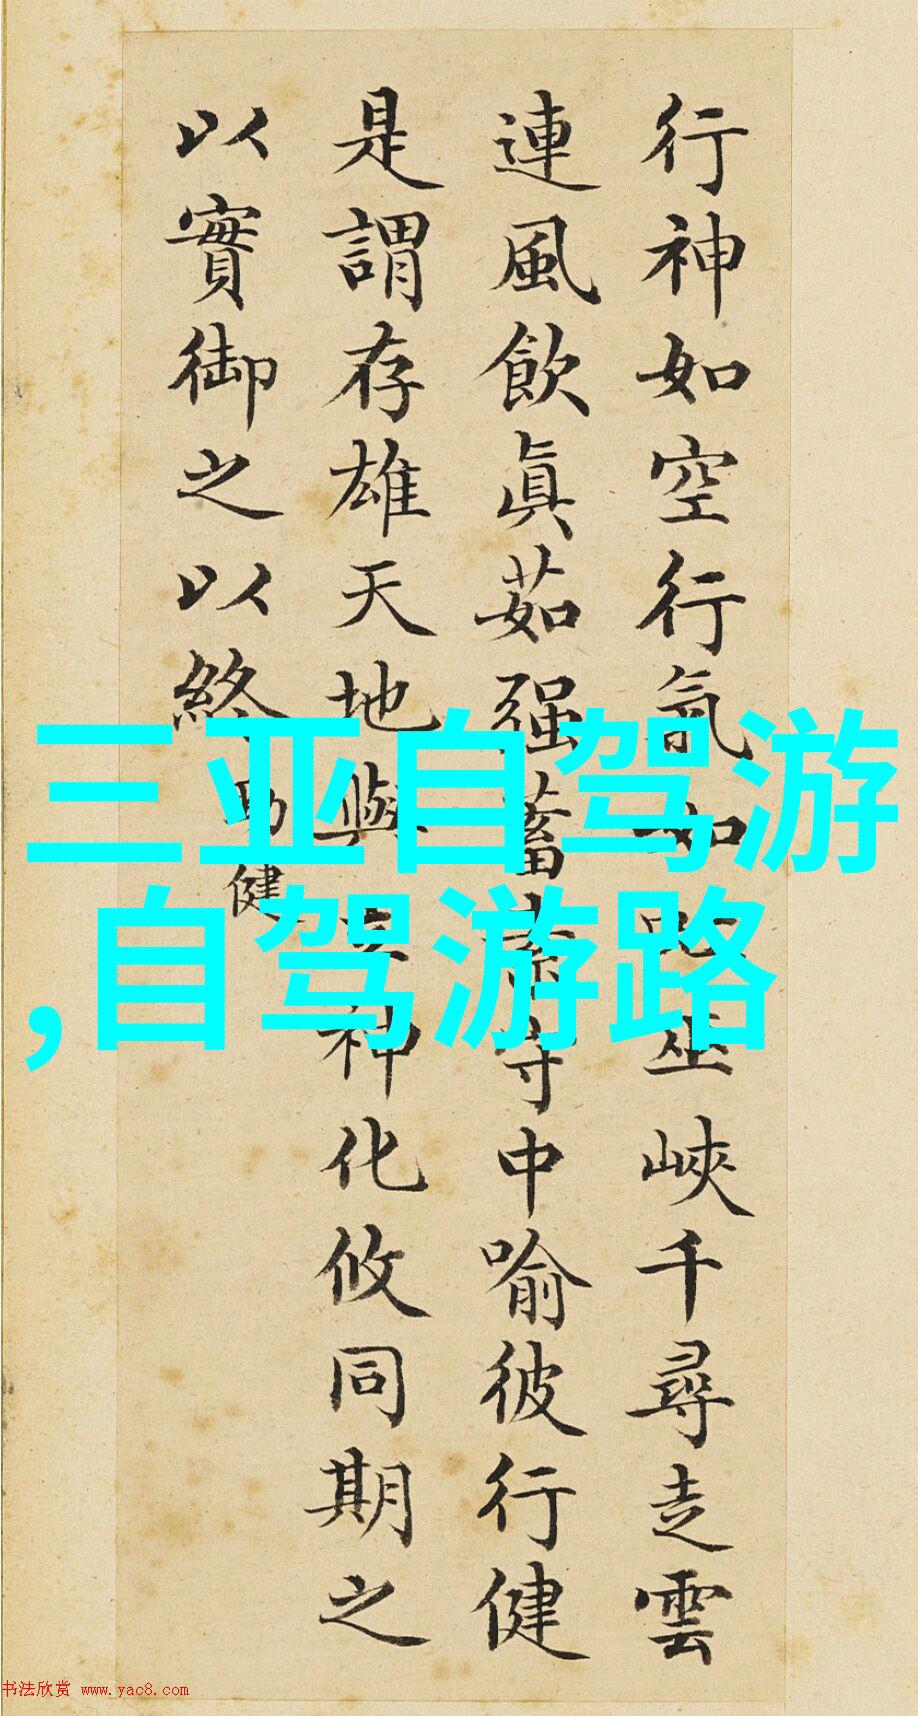 行神如空行氣如虹巫峽千尋走雲
連風飲眞茹强蓄素守中喻彼行健
是謂存雄天地與立神化攸同期之
以實御之以終
勁健
三亚自驾游
,自驾游路
书法欣赏 www.yac8.com